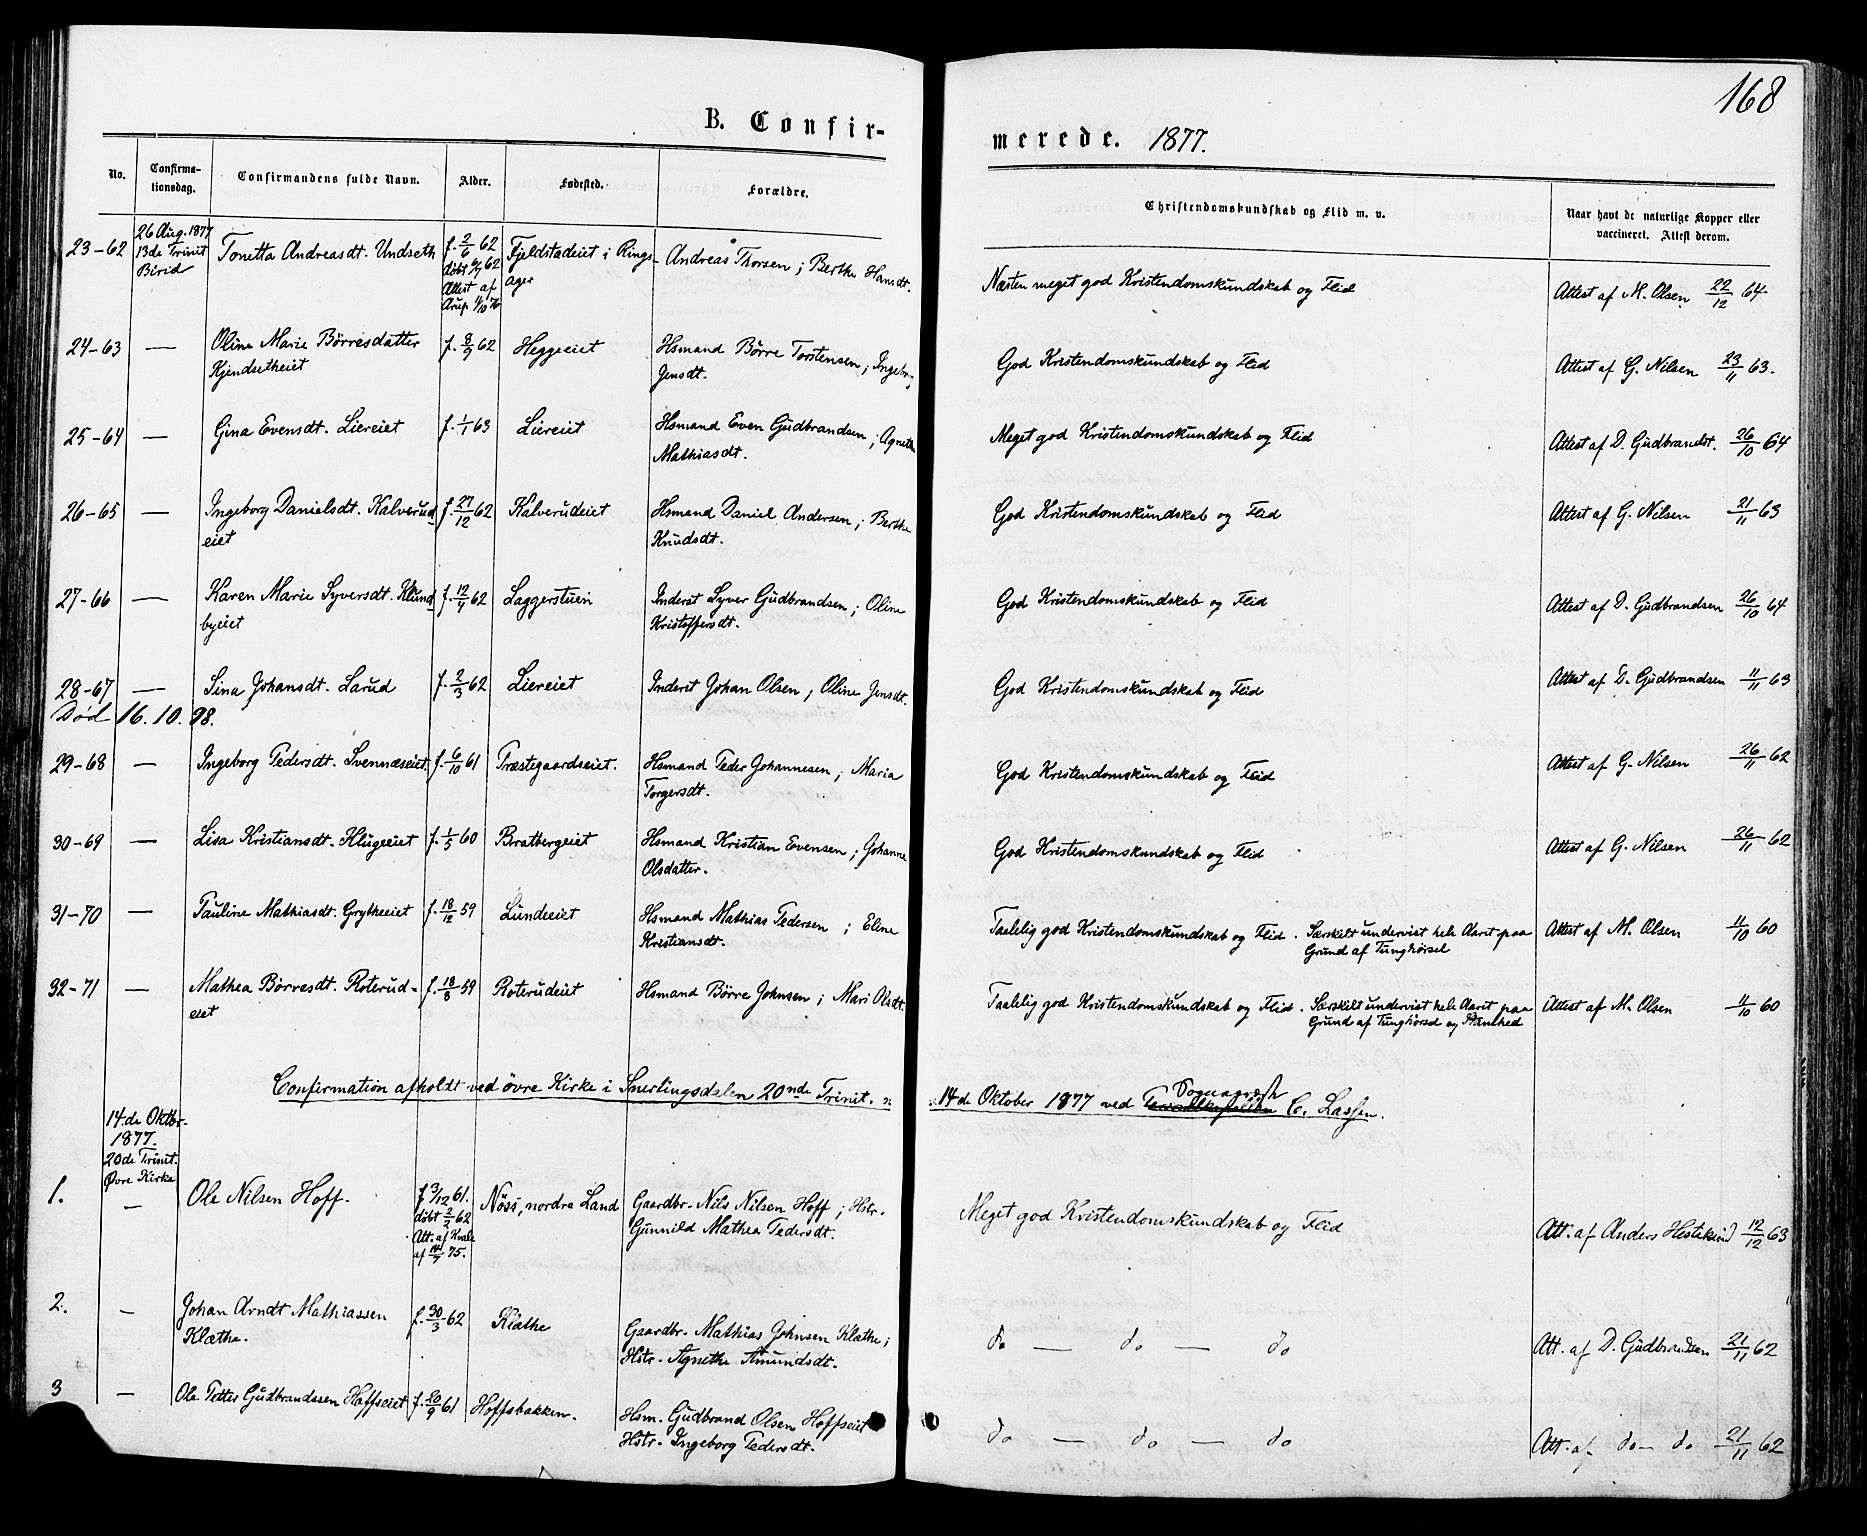 168
B. Confir-
merede. 1877.
No.
Confirma-
tionsdag.
Confirmandens fulde Navn.
Alder.
Fødested.
Forældre.
Christendomskundskab og Flid m. v.
Naar havt de naturlige Kopper eller
vaccineret. Attest derom.
23-62
26 Aug. 1877
13de Trinit
Birid
Tonetta Andreasdt. Undseth
f. 2/6 62
døbt 6/7 62
Attest af
Aug. 4/10 76
Fjeldstadeiet i Rings-
ager
Andreas Thorsen; Berthe Hansdt.
Næsten meget god Kristendomskundskab og Flid
Attest af M. Olsen 22/12 64
24-63
—
Oline Marie Børresdatter
Kjendsetheiet
f. 8/9 62
Heggeeiet
Hsmand Børre Torstensen; Ingeborg
Jensdt.
God Kristendomskundskab og Flid
Attest af G. Nilsen 23/11 63.
25-64
—
Gina Evensdt. Liereiet
f. 1/1 63
Liereiet
Hsmand Even Gudbrandsen; Agnethe
Mathiasdt.
Meget god Kristendomskundskab og Flid
Attest af D. Gudbrandst. 26/10 64
26-65
—
Ingeborg Danielsdt. Kalverud-
eiet
f. 27/12 62
Kalverudeiet
Hsmand Daniel Andersen; Berthe
Knudsdt.
God Kristendomskundskab og Flid
Attest af G. Nilsen 21/11 63
27-66
—
Karen Marie Syversdt. Klund-
byeiet
f. 12/4 62
Laggerstuen
Inderst Syver Gudbrandsen; Oline
Kristoffersdt.
God Kristendomskundskab og Flid
Attest af D. Gudbrandsen 26/10 64
28-67
—
Sina Johansdt. Larud
f. 2/3 62
Liereiet
Inderst Johan Olsen; Oline Jensdt.
God Kristendomskundskab og Flid
Attest af D. Gudbrandsen 11/11 63
Død 16. 10. 98.
29-68
—
Ingeborg Pedersdt. Svennæseiet
f. 6/10 61
Præstegaardseiet.
Hsmand Peder Johannesen; Maria
Torgersdt.
God Kristendomskundskab og Flid
Attest af G. Nilsen 26/11 62
30-69
—
Lisa Kristiansdt. Klugeeiet
f. 1/5 60
Bratbergeiet
Hsmand Kristian Evensen; Johanne
Olsdatter.
God Kristendomskundskab og Flid
Attest af G. Nilsen 26/11 62
31-70
—
Pauline Mathiasdt. Grytheeiet
f. 18/12 59
Lundeeiet
Hsmand Mathias Pedersen; Eline
Kristiansdt.
Taalelig god Kristendomskundskab og Flid. Særskilt undervist hele Aaret paa
Grund af Tunghørsel
Attest af M. Olsen 11/10 60
32-71
—
Mathea Børresdt. Roterud-
eiet
f. 18/8 59
Roterudeiet
Hsmand Børre Johnsen; Mari Olsdt.
Taalelig god Kristendomskundskab og Flid. Særskilt undervist hele Aaret paa
Grund af Tunghørsel og
Attest af M. Olsen 11/10 60
Confirmation afholdt ved övre Kirke i Snertingsdalen 20nde Trinit. ɔ:
14de Oktober 1877 ved Sognepræst C. Lassen.
14.de Oktbr.
1877.
20de Trinit.
Øvre Kirke
1.
—
Ole Nilsen Hoff.
f 3/12 61.
døbt 2/2 62
Att. af Kvale
af 14/7 75.
Nöss, nordra Land
Gaardbr. Nils Nilsen Hoff; Hstr.
Gunnild Mathea Pedersdt.
Meget god Kristendomskundskab og Flid
Att. af Anders Hestekind 12/12 63
2.
—
Johan Arndt Mathiassen
Klæthe.
f. 30/3 62
Klæthe
Gaardbr. Mathias Johnsen Klæthe;
Hstr. Agnethe Amundsdt.
do — do — do
Att. af D. Gudbrandsen 21/11 62
3
—
Ole Petter Gudbrandssen Hoffseiet
f. 20/9 61
Hoffsbakken.
Hsm. Gudbrand Olsen Hoffseiet
Hstr. Ingeborg Pedersdt.
do — do — do
Att. af do — do 21/11 62